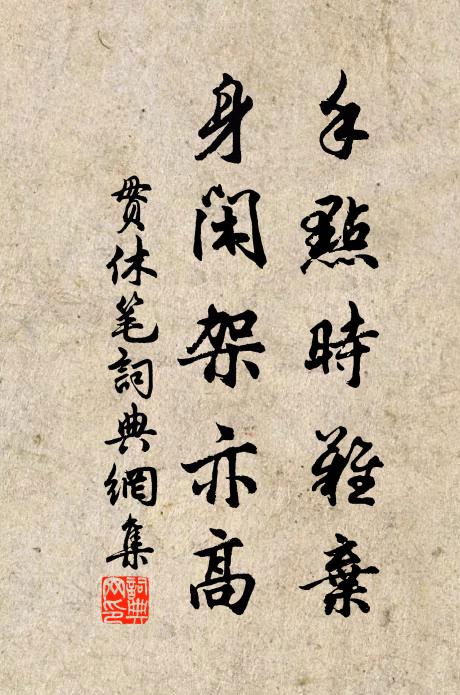 手點時難棄
身閑架亦高
貫休笔詞典網集
詞典網印